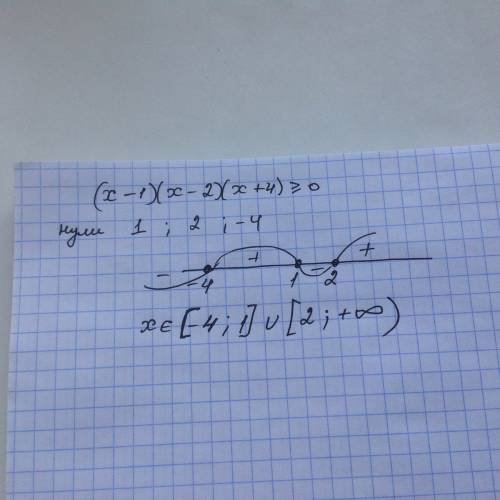 (x-1)(x-2)(x+4)≥0
нули 1 ; 2 ; -4
- + - +
-4 1 2
x∈[-4; 1]∪[2; +∞)